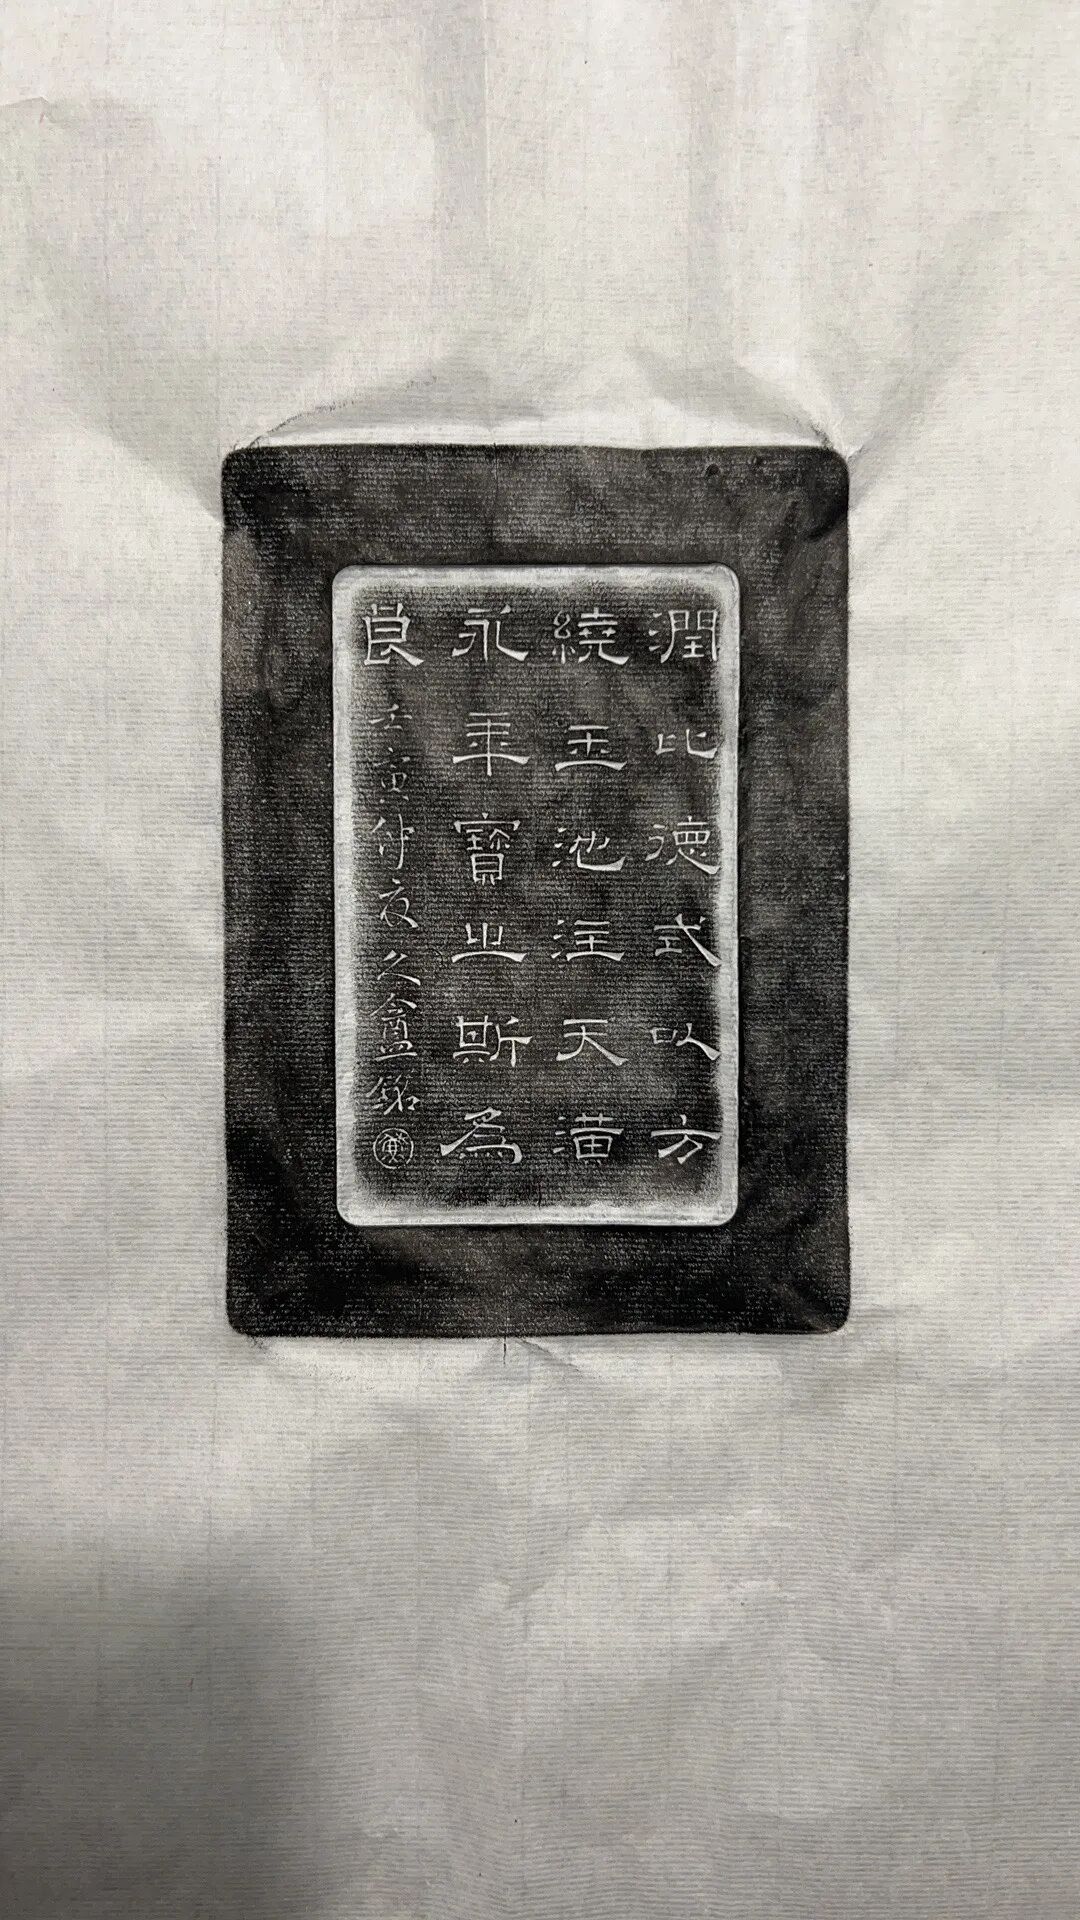 潤比德式以方
繞玉池注天潢
永年寶之斯為
良 壬寅仲夜久盦銘